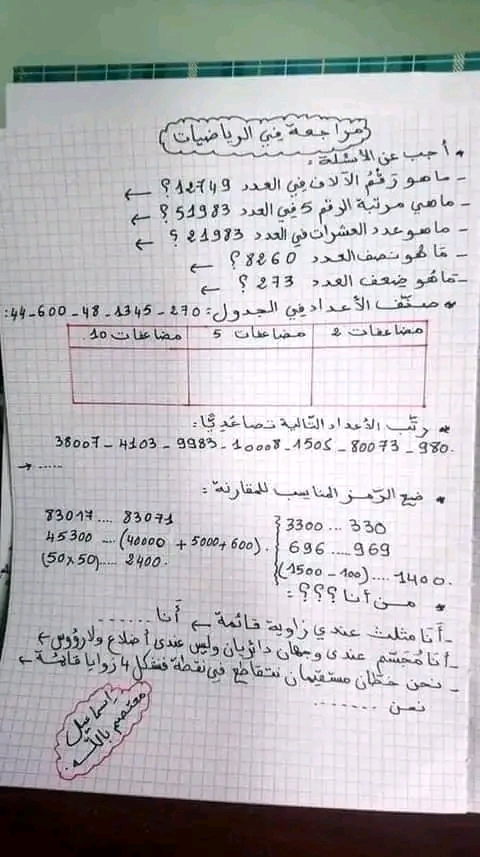 مراجعة في الرياضيات
* أجب عن الأسئلة :
- ماهو رقم الآلاف في العدد 12749 ؟ ←
- ماهي مرتبة الرقم 5 في العدد 51983 ؟ ←
- ماهو عدد العشرات في العدد 21983 ؟ ←
- ما هو نصف العدد 8260 ؟ ←
- ماهو ضعف العدد 273 ؟ ←
* صنّف الأعداد في الجدول : 270 - 1345 - 48 - 600 - 44 :
مضاعفات 2 | مضاعفات 5 | مضاعفات 10
* رتّب الأعداد التّالية تصاعديًّا :
38007 - 4103 - 9983 - 10008 - 1505 - 80073 - 980.
→ ......
* ضع الرّمز المناسب للمقارنة :
83017 .... 83071
3300 ... 330
45300 .... (40000 + 5000 + 600).
696 .... 969
(50 x 50) .... 2400.
(1500 - 100) .... 1400.
* من أنا ؟؟؟ :
- أنا مثلث عندي زاوية قائمة ← أنا ......
- أنا مُجسّم عندي وجهان دائريان وليس عندي أضلاع ولا رؤوس ←
- نحن خطّان مستقيمان نتقاطع في نقطة فنشكل 4 زوايا قائمة ←
نحن .......
إسماعيل
معتصم بالله.